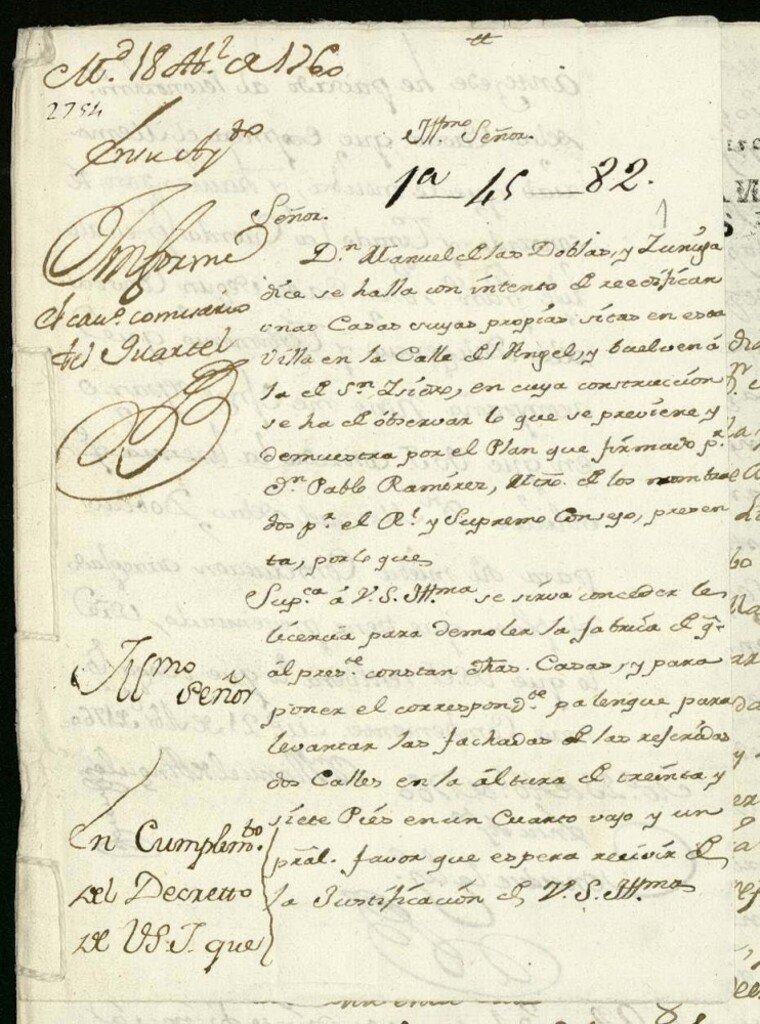 M.d 18 Ab.l de 1760
2754
En su Ay.to
Informe
el cav.o comisario
del Quartel
Jll.mo Señor.
1a 45 82.
Señor.
D.n Manuel de las Doblas, y Zuñiga
dice se halla con intento de reedificar
unas Casas suyas propias sitas en esta
Villa en la Calle del Angel, y buelven á
la de S.n Isidro, en cuya construccion
se ha de observar lo que se previene, y
demuestra por el Plan que firmado p.r
D.n Pablo Ramirez, Mro. de los nombra
dos p.r el R.l y Supremo Consejo, presen
ta, por lo que
Sup.ca á V. S. Jll.ma se sirva conceder le
licencia para demoler la fabrica de q.e
al pres.te constan dhas. Casas, y para
poner el correspond.te palengue para
levantar las fachadas de las referidas
dos Calles en la altura de treinta y
siete Pies en un Cuarto vajo y un
pral. favor que espera recivir de
la Justificacion de V. S. Jll.ma
Jll.mo
Señor
En Cumplim.to
del Decretto
de V.S.J. que